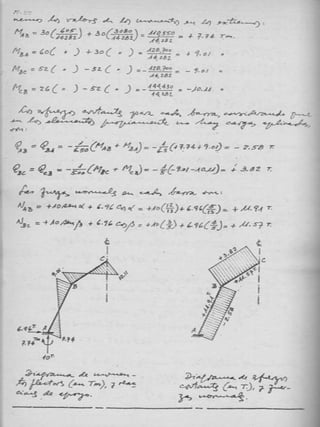 nemos los valores de los momentos en los extremos:
M_AB = 30(605/14281) + 30(3080/14281) = 110,550/14,281 = + 7.74 Tm.
M_BA = 60( " ) + 30( " ) = 128,700/14,281 = + 9.01 "
M_BC = 52( " ) - 52( " ) = - 128,700/14,281 = - 9.01 "
M_CB = 26( " ) - 52( " ) = - 144,430/14,281 = - 10.11 "
Los esfuerzos cortantes para cada barra, considerando que
en los elementos propiamente no hay cargas aplicadas,
son:
Q_AB = Q_BA = - (M_AB + M_BA) = - (+7.74+9.01) = - 2.58 T.
Q_BC = Q_CB = - (M_BC + M_CB) = - (-9.01-10.11) = + 3.82 T.
Las fuerzas normales en cada barra son:
N_AB = +10 sen α + 6.96 cos α = +10(12/13) + 6.96(5/13) = + 11.91 T.
N_BC = +10 sen β + 6.96 cos β = +10(3/5) + 6.96(4/5) = + 11.57 T.
C
9.01
B
10.11
6.96 T
A
7.74
7.74 Tm
10 T
+ 3.82
C
+ 11.57 T
B
+ 11.91 T
- 2.58
A
Diagrama de momen-
tos flectores (en Tm), y reac
ciones de apoyo.
Diagrama de esfuerzos
cortantes (en T.), y fuer-
zas normales.